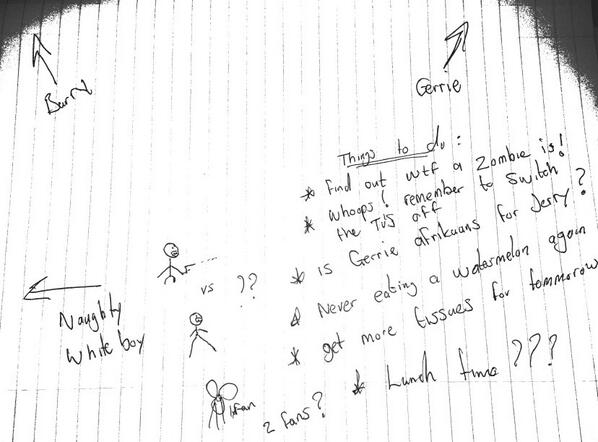 Barry
Gerrie
Things to do :
* find out wtf a Zombie is!
* whoops! remember to switch
the TV's off
* is Gerrie afrikaans for Jerry?
* Never eating a watermelon again
* get more tissues for tommorrow
* Lunch time ???
vs ??
Naughty
white boy
2 fans?